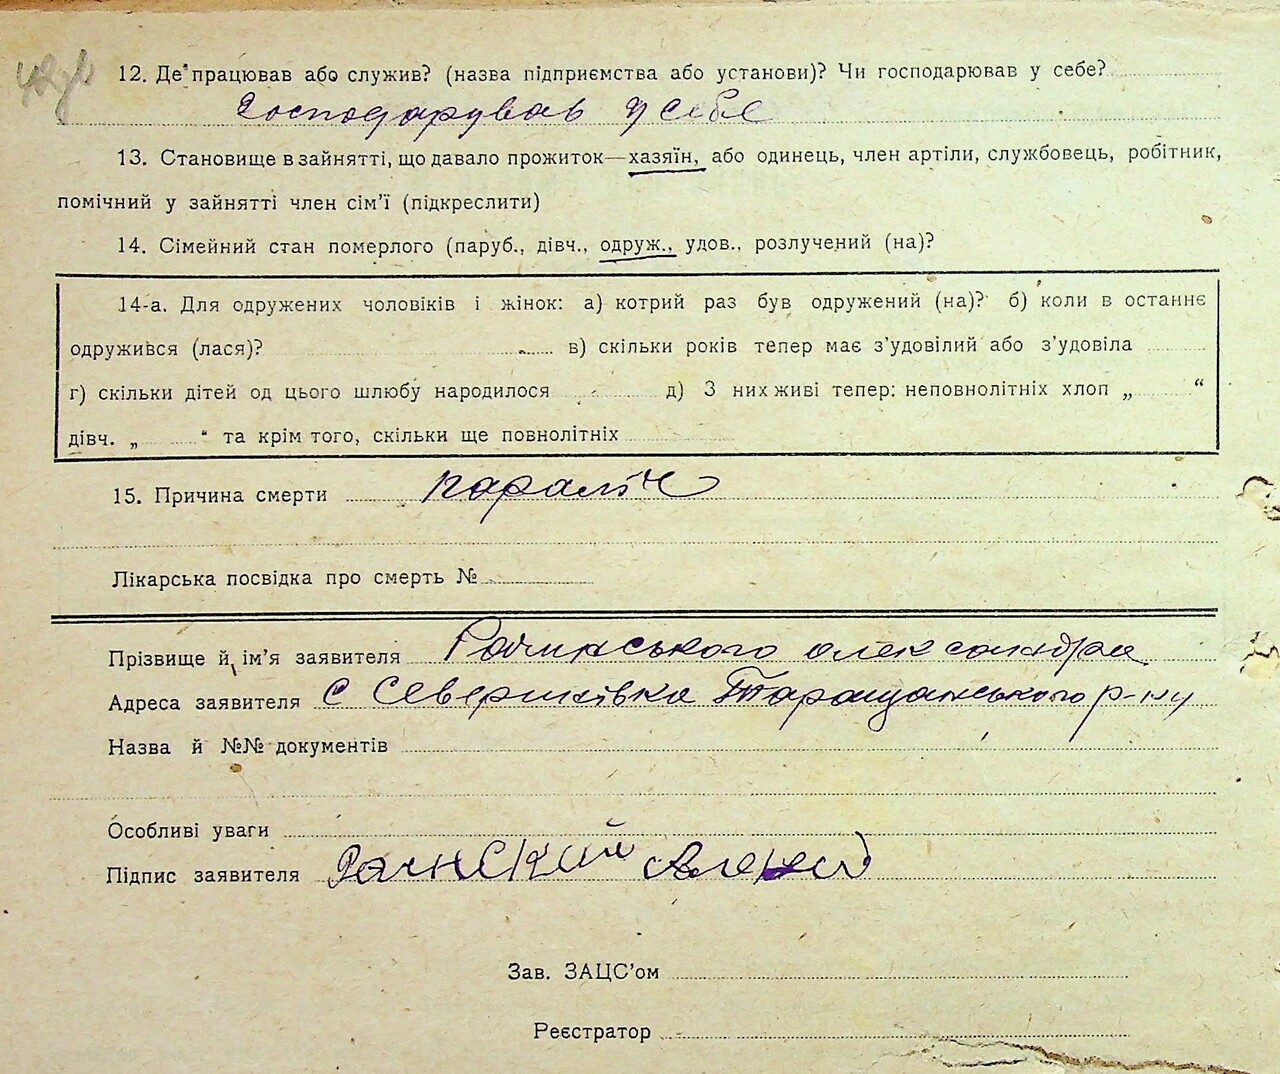 12. Де працював або служив? (назва підприємства або установи)? Чи господарював у себе?
Господарував у себе
13. Становище в зайнятті, що давало прожиток—хазяїн, або одинець, член артіли, службовець, робітник,
помічний у зайнятті член сім’ї (підкреслити)
14. Сімейний стан померлого (паруб., дівч., одруж., удов., розлучений (на)?
14-а. Для одружених чоловіків і жінок: а) котрий раз був одружений (на)? б) коли в останнє
одружився (лася)? в) скільки років тепер має з’удовілий або з’удовіла
г) скільки дітей од цього шлюбу народилося д) З них живі тепер: неповнолітніх хлоп „ “
дівч. „ “ та крім того, скільки ще повнолітніх
15. Причина смерти параліч
Лікарська посвідка про смерть №
Прізвище й ім’я заявителя Рачинського олександра
Адреса заявителя с Северинівка Таращанського р-ну
Назва й №№ документів
Особливі уваги
Підпис заявителя
Зав. ЗАЦС’ом
Реєстратор